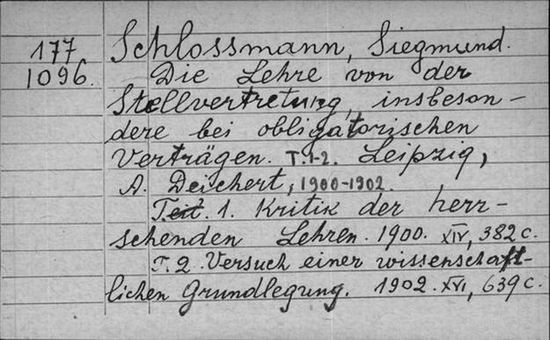 177 Schlossmann, Siegmund.
1096. Die Lehre von der
Stellvertretung, insbeson-
dere bei obligatorischen
Verträgen. T.1-2. Leipzig,
A. Deichert, 1900-1902.
Teil. 1. Kritik der herr-
schenden Lehren. 1900. XIV, 382 c.
T. 2. Versuch einer wissenschaft-
lichen Grundlegung. 1902. XVI, 639 c.